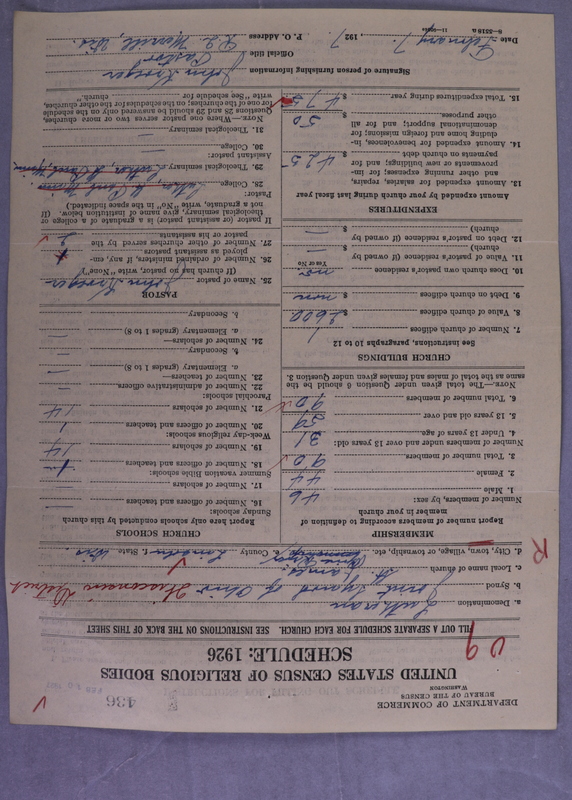 DEPARTMENT OF COMMERCE
BUREAU OF THE CENSUS
WASHINGTON
436
UNITED STATES CENSUS OF RELIGIOUS BODIES
SCHEDULE: 1926
FILL OUT A SEPARATE SCHEDULE FOR EACH CHURCH. SEE INSTRUCTIONS ON THE BACK OF THIS SHEET
a. Denomination Lutheran
b. Synod Joint Synod of Ohio Wisconsin District
c. Local name of church St. James
d. City, town, village, or township, etc. Pine River e. County Lincoln f. State Wis.
MEMBERSHIP
Report number of members according to definition of
member in your church
Number of members, by sex:
1. Male 46
2. Female 44
3. Total number of members. 90
Number of members under and over 13 years old:
4. Under 13 years of age. 31
5. 13 years old and over 59
6. Total number of members 90
NOTE.—The total given under Question 6 should be the
same as the total of males and females given under Question 3.
CHURCH BUILDINGS
See instructions, paragraphs 10 to 12
7. Number of church edifices 1
8. Value of church edifices $ 2600
9. Debt on church edifices $ non
10. Does church own pastor's residence no
Yes or No
11. Value of pastor's residence (if owned by
church) $ —
12. Debt on pastor's residence (if owned by
church) $ —
EXPENDITURES
Amount expended by your church during last fiscal year
13. Amount expended for salaries, repairs,
and other running expenses; for im-
provements or new buildings; and for
payments on church debt $ 425
14. Amount expended for benevolences, in-
cluding home and foreign missions; for
denominational support; and for all
other purposes. $ 50
15. Total expenditures during year $ 475
CHURCH SCHOOLS
Report here only schools conducted by this church
Sunday schools:
16. Number of officers and teachers —
17. Number of scholars —
Summer vacation Bible schools:
18. Number of officers and teachers 1
19. Number of scholars 14
Week-day religious schools:
20. Number of officers and teachers 1
21. Number of scholars 14
Parochial schools:
22. Number of administrative officers —
23. Number of teachers—
a. Elementary (grades 1 to 8) —
b. Secondary —
24. Number of scholars—
a. Elementary (grades 1 to 8) —
b. Secondary
PASTOR
25. Name of pastor John Kroeger
(If church has no pastor, write "None")
26. Number of ordained ministers, if any, em-
ployed as assistant pastors
27. Number of other churches served by the
pastor or his assistants 2
If pastor (or assistant pastor) is a graduate of a college or
theological seminary, give name of institution below. (If
not a graduate, write "No" in the space indicated.)
Pastor:
28. College. Luther, St Paul Minn
29. Theological seminary Luther, St Paul, Minn
Assistant pastor:
30. College.
31. Theological seminary
NOTE.—Where one pastor serves two or more churches,
Questions 28 and 29 should be answered only on the schedule
for one of the churches; on the schedules for the other churches,
write "See schedule for church."
Signature of person furnishing information John Kroeger
Official title Pastor
Date February 7, 1927. P. O. Address R 2 Merrill, Wis.